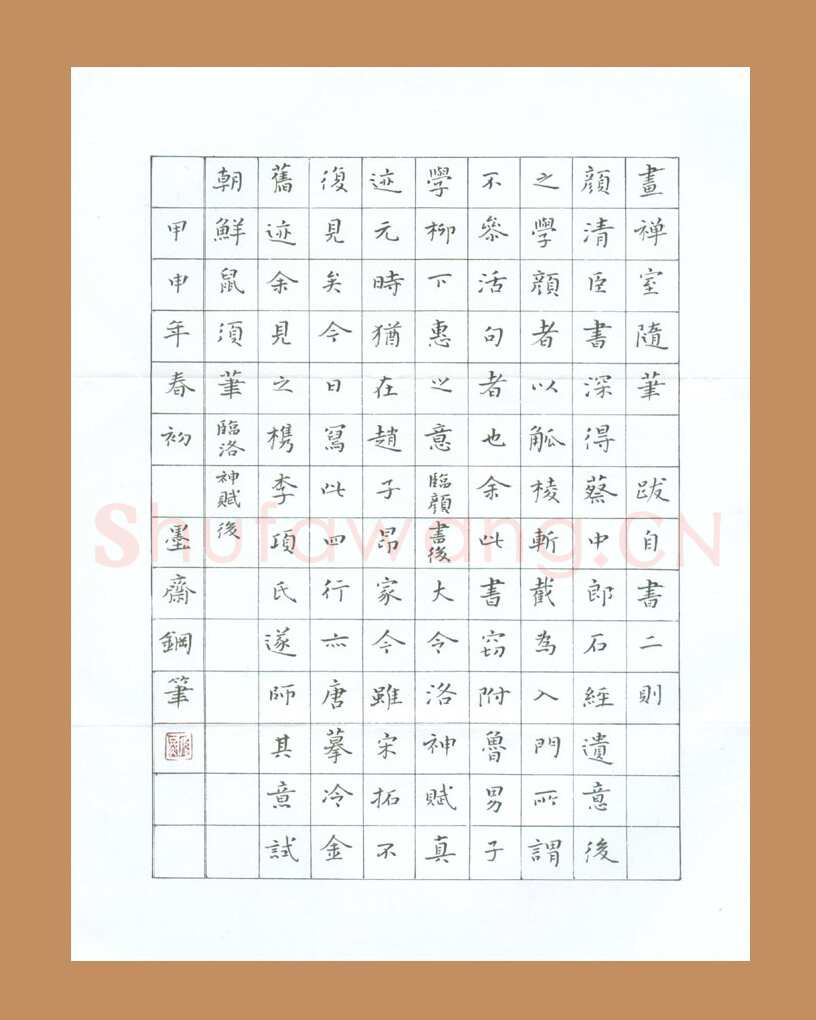 畫禅室隨筆 跋自書二則
顔清臣書深得蔡中郎石經遺意後
之學顔者以觚棱斬截為入門所謂
不叅活句者也余此書窃附魯男子
學柳下惠之意臨顔書後大令洛神賦真
迹元時猶在趙子昂家今雖宋拓不
復見矣今日寫此四行亦唐摹冷金
舊迹余見之檇李項氏遂師其意試
朝鮮鼠須筆臨洛神賦後
甲申年春初 墨齋鋼筆
Shufawang.CN